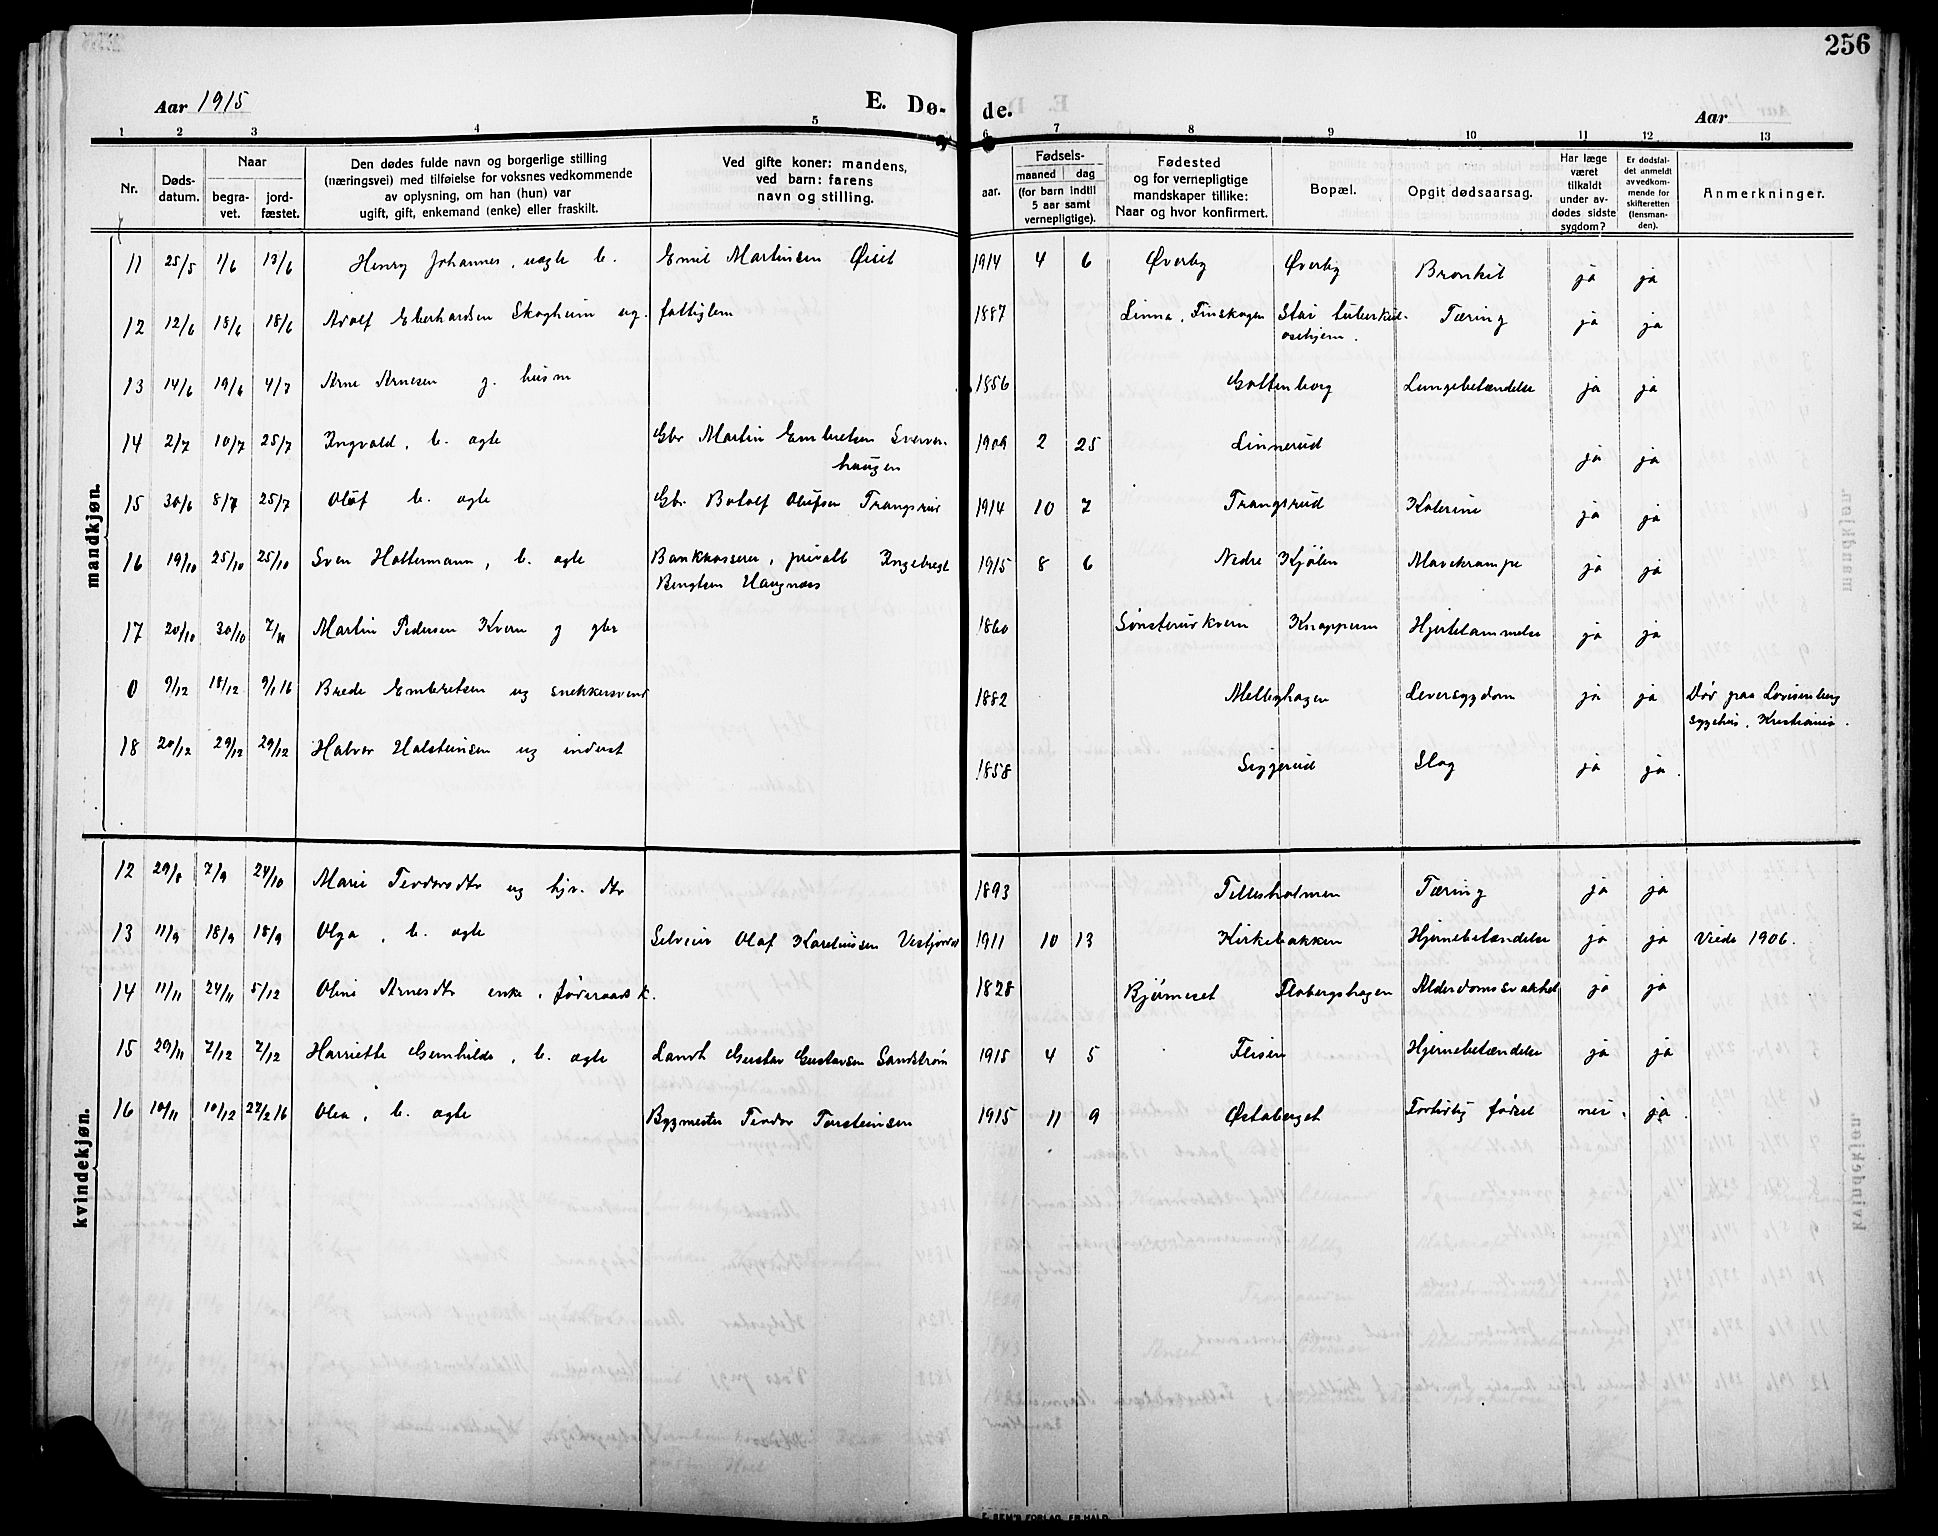 256
Aar 1915
E. Dø-
de.
Aar
1 2 3 4 5 6 7 8 9 10 11 12 13
Nr.
Døds-
datum.
Naar
begra-
vet.
jord-
fæstet.
Den dødes fulde navn og borgerlige stilling
(næringsvei) med tilføielse for voksnes vedkommende
av oplysning, om han (hun) var
ugift, gift, enkemand (enke) eller fraskilt.
Ved gifte koner: mandens,
ved barn: farens
navn og stilling.
Fødsels-
aar.
maaned
dag
(for barn indtil
5 aar samt
vernepligtige).
Fødested
og for vernepligtige
mandskaper tillike:
Naar og hvor konfirmert.
Bopæl.
Opgit dødsaarsag.
Har læge
været
tilkaldt
under av-
dødes sidste
sygdom?
Er dødsfal-
det anmeldt
av vedkom-
mende for
skifteretten
(lensman-
den).
Anmerkninger.
mandkjøn.
11 25/5 1/6 13/6 Henry Johannes, uægte b. Emil Martinsen 1914 4 6 Øverby Øverby Bronkit ja ja
12 12/6 18/6 18/6 Adolf Eberhardsen Skogheim ug. fattiglem 1887 Linna, Finskogen Stai tuberkul-
osehjem. Tæring ja ja
13 14/6 19/6 4/7 Arne Arnesen g. husm 1856 Gottenborg Lungebetændelse ja ja
14 2/7 10/7 25/7 Ingvald, b. ægte Gbr Martin Embretsen
haugen 1909 2 25 Linnerud ja ja
15 30/6 8/7 25/7 Olaf b. ægte Gbr. Botolf Olufsen Trangsrud 1914 10 7 Trangsrud Kolerine ja ja
16 19/10 25/10 25/10 Sven Haltermann, b. ægte Bankkasserer, privatt Ingebregt
Bengtsen Haugnæs 1915 8 6 Nedre Kjølen Mavekrampe ja ja
17 20/10 30/10 7/11 Martin Pedersen Kvern g gbr 1860 Sønsterudkvern Knappern Hjertelammelse ja ja
0 9/12 18/12 9/1 16 Brede Embretsen ug snekkersvend 1882 Mellephagen Leversygdom ja ja Død paa Lovisenberg
sygehus, Kristiania.
18 20/12 29/12 29/12 Halvor Halsteinsen ug inderst 1858 Siggerud Slag ja ja.
kvindekjøn.
12 29/8 7/9 24/10 Marie Teodorsdtr ug hjv. dtr 1893 Tillesholmen Tæring ja ja
13 11/9 18/9 18/9 Olga, b. ægte Selveier Olaf Karstensen 1911 10 13 Kirkebakken Hjernebetændelse ja ja Viede 1906.
14 11/11 24/11 5/12 Oline Arnesdtr enke, føderaadsk. 1828 Bjørneset Flobergshagen Alderdomssvakhet ja ja
15 29/11 7/12 7/12 Harriette Gunhilde, b. ægte Landh Gustav Gustavsen Sandstrøm 1915 4 5 Flisen Hjernebetændelse ja ja
16 10/11 10/12 27/2 16 Olea, b. ægte Bygmester Teodor Torsteinsen 1915 11 9 Østaberget Fortidlig født nei. ja.